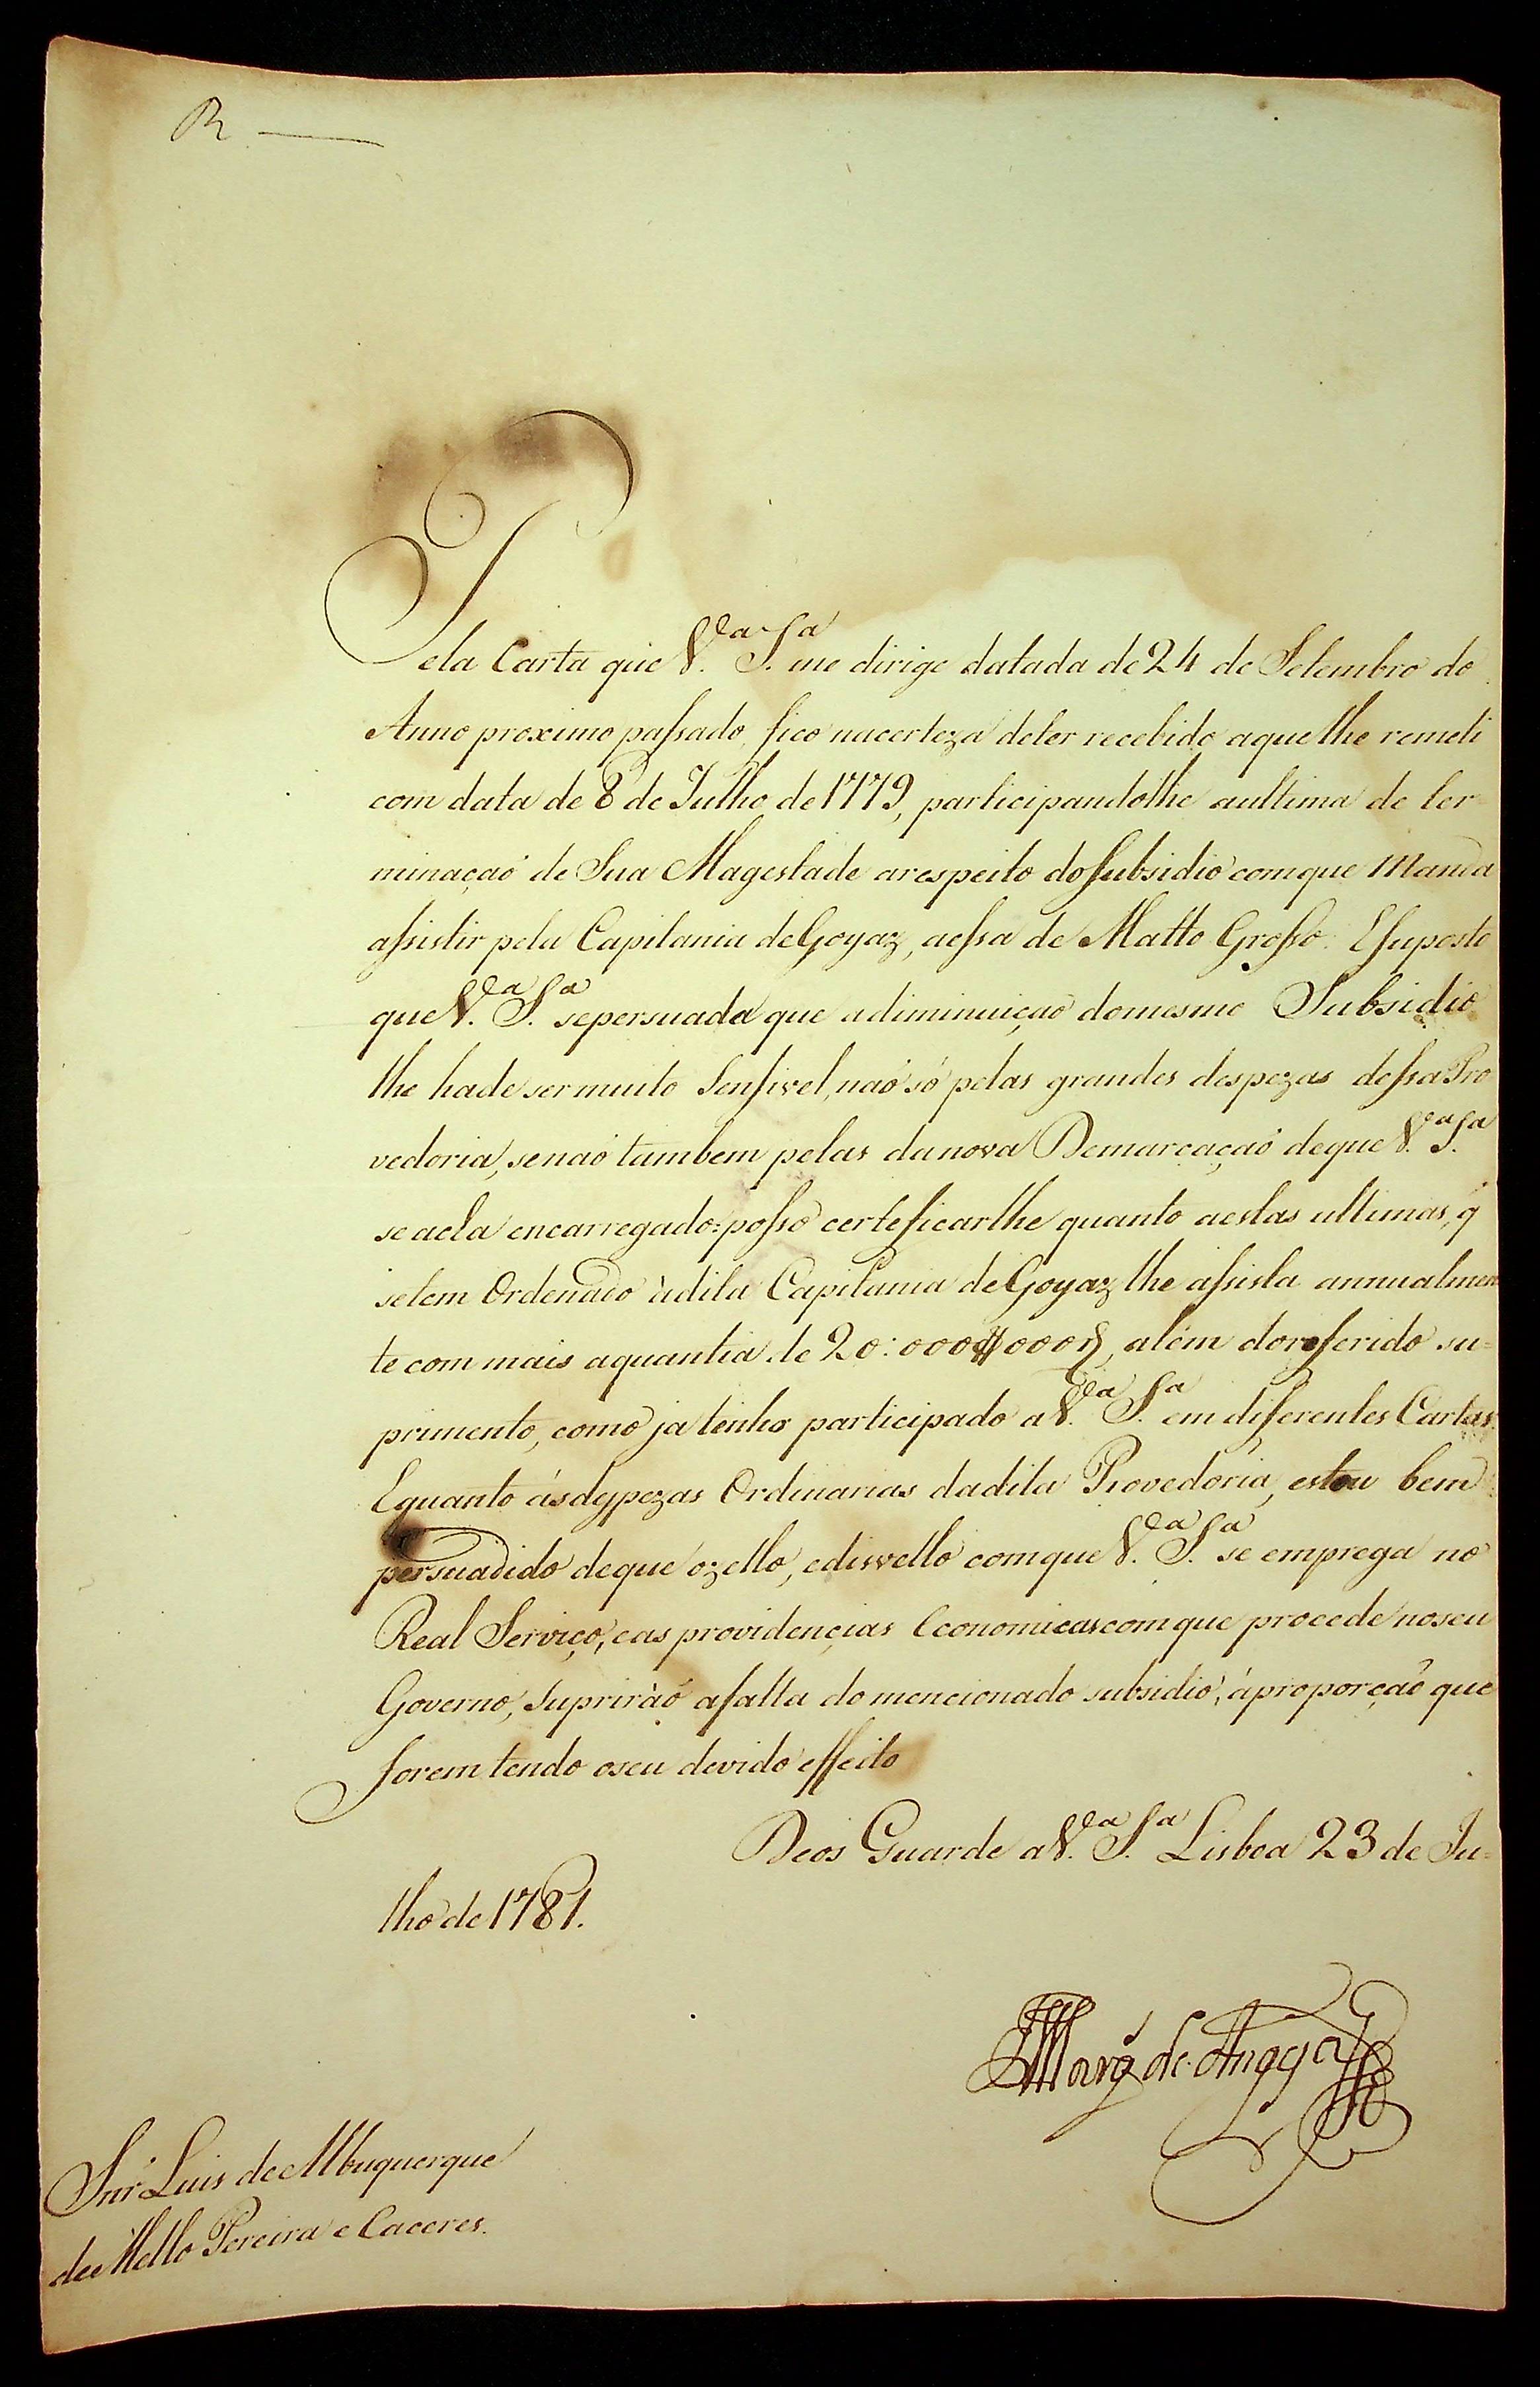 R
Pela Carta que V.ª S.ª me dirige datada de 24 de Setembro do
Anno proximo passado, fico nacerteza deter recebido aque lhe remeti
com data de 8 de Julho de 1779, participandolhe aultima de ter=
minaçaõ de Sua Magestade arespeito do subsidio comque Manda
assistir pela Capitania de Goyaz, aessa de Matto Grosso. E suposto
que V.ª S.ª sepersuada que adiminuiçaõ domesmo Subsidio
lhe hade ser muito sensivel, naõ só pelas grandes despezas dessa Pro
vedoria, senaõ tambem pelas danova Demarcaçaõ deque V.ª S.ª
se acha encarregado: posso certeficarlhe quanto aestas ultimas, q̃
setem Ordenado àdita Capitania de Goyaz lhe assista annualmen
te com mais aquantia de 20:000$000 rs, alèm doreferido su=
primento, como ja tenho participado a V.ª S.ª em diferentes Cartas.
Equanto ásdespezas Ordinarias dadita Provedoria, estou bem
persuadido deque ozello, edisvello comque V.ª S.ª se emprega no
Real Serviço, eas providençias Economicas comque procede noseu
Governo, supriràõ afalta do mencionado subsidio, áproporçaõ que
forem tendo oseu devido effeito
Deos Guarde a V.ª S.ª Lisboa 23 de Ju=
lho de 1781.
Marq̃ de Angeja
Snr̃ Luis de Albuquerque
de Mello Pereira e Caceres.